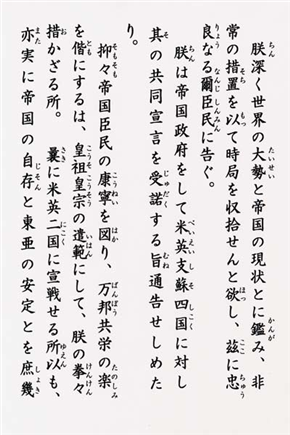 朕深く世界の大勢と帝国の現状とに鑑み、非
常の措置を以て時局を収拾せんと欲し、茲に忠
良なる爾臣民に告ぐ。
朕は帝国政府をして米英支蘇四国に対し
其の共同宣言を受諾する旨通告せしめた
り。
抑々帝国臣民の康寧を図り、万邦共栄の楽
を偕にするは、皇祖皇宗の遺範にして、朕の拳々
措かざる所。
曩に米英二国に宣戦せる所以も、
亦実に帝国の自存と東亜の安定とを庶幾